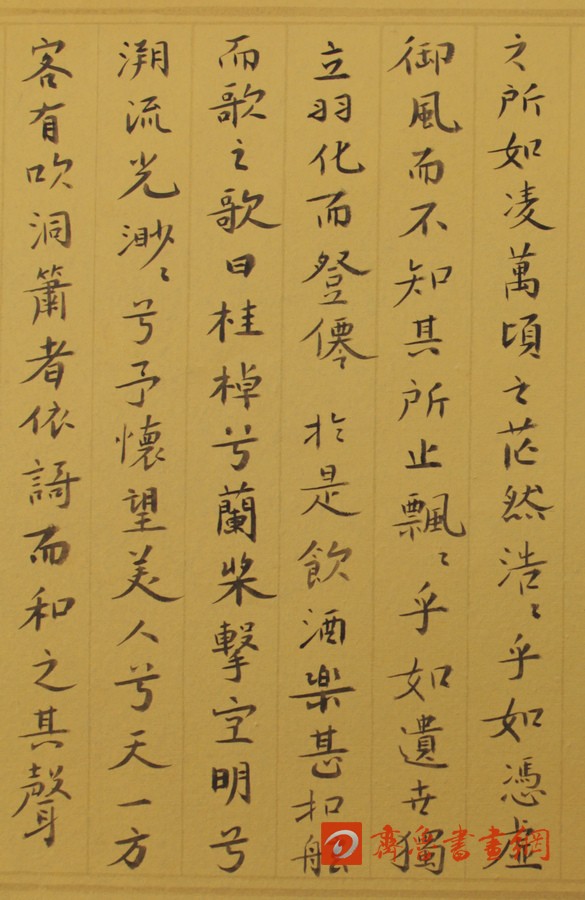 之所如凌萬頃之茫然浩〻乎如憑虛
御風而不知其所止飄〻乎如遺世獨
立羽化而登僊 於是飲酒樂甚扣舷
而歌之歌曰桂棹兮蘭槳擊空明兮
溯流光渺〻兮予懷望美人兮天一方
客有吹洞簫者依謌而和之其聲
齊魯書畫網